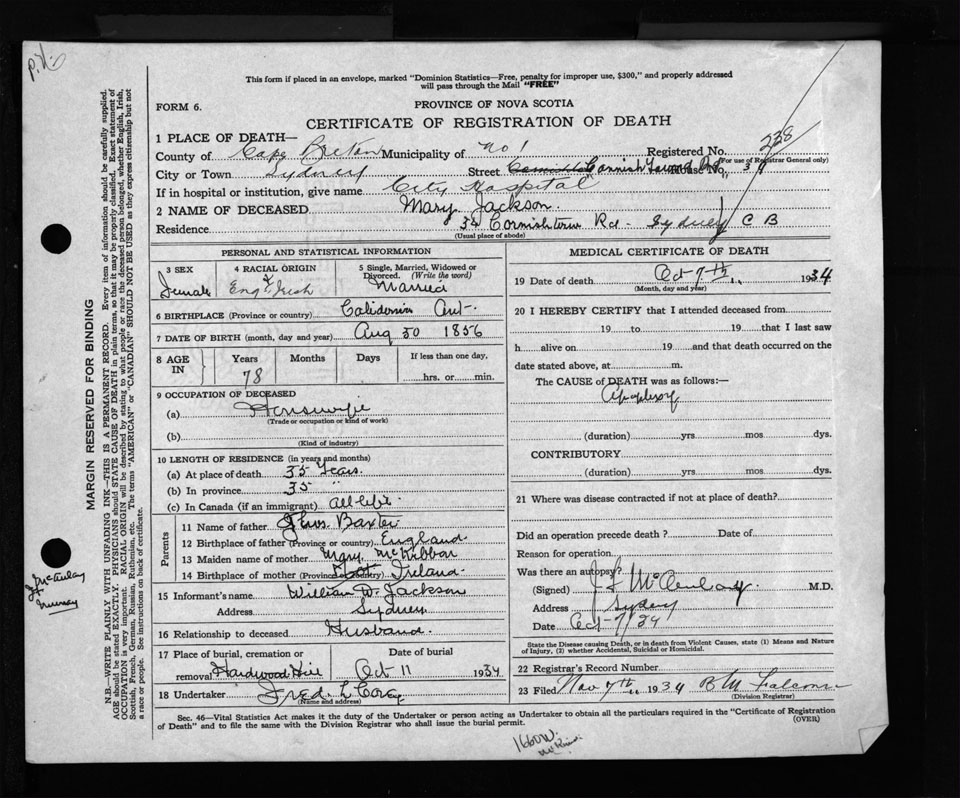 This form if placed in an envelope, marked "Dominion Statistics—Free, penalty for improper use, $300," and properly addressed
will pass through the Mail "FREE"
FORM 6.
PROVINCE OF NOVA SCOTIA
CERTIFICATE OF REGISTRATION OF DEATH
1 PLACE OF DEATH—
Registered No. 228
(For use of Registrar General only)
County of Cape Breton Municipality of No 1
City or Town Sydney Street Road House No.
If in hospital or institution, give name City Hospital
2 NAME OF DECEASED Mary Jackson.
Residence Rd. Sydney C B
(Usual place of abode)
PERSONAL AND STATISTICAL INFORMATION
3 SEX
Female
4 RACIAL ORIGIN
Eng & Irish
5 Single, Married, Widowed or Divorced. (Write the word)
Married
6 BIRTHPLACE (Province or country) Ont.
7 DATE OF BIRTH (month, day and year) Aug 30 1856
8 AGE IN
Years Months Days If less than one day,
78 hrs. or min.
9 OCCUPATION OF DECEASED
(a) Housewife
(Trade or occupation or kind of work)
(b)
(Kind of industry)
10 LENGTH OF RESIDENCE (in years and months)
(a) At place of death 35 Years.
(b) In province 35 "
(c) In Canada (if an immigrant) all life.
Parents
11 Name of father Thos. Baxter
12 Birthplace of father (Province or country) England
13 Maiden name of mother Mary McKibbon
14 Birthplace of mother (Province or country) Ireland.
15 Informant's name William W. Jackson
Address Sydney
16 Relationship to deceased Husband.
17 Place of burial, cremation or removal Hardwood Hill
Date of burial
Oct 11 1934
18 Undertaker Fred L
(Name and address)
MEDICAL CERTIFICATE OF DEATH
19 Date of death Oct 7th, 1934
(Month, day and year)
20 I HEREBY CERTIFY that I attended deceased from
19 to 19 that I last saw
h alive on 19 and that death occurred on the
date stated above, at m.
The CAUSE of DEATH was as follows:—
Apoplexy
(duration) yrs. mos dys.
CONTRIBUTORY
(duration) yrs. mos dys.
21 Where was disease contracted if not at place of death?
Did an operation precede death? Date of
Reason for operation
Was there an autopsy?
(Signed) M.D.
Address Sydney
Date Oct 7/34
State the Disease causing Death, or in death from Violent Causes, state (1) Means and Nature
of Injury, (2) whether Accidental, Suicidal or Homicidal.
22 Registrar's Record Number
23 Filed Nov 7th 1934 B M Falconer
(Division Registrar)
Sec. 46—Vital Statistics Act makes it the duty of the Undertaker or person acting as Undertaker to obtain all the particulars required in the "Certificate of Registration
of Death" and to file the same with the Division Registrar who shall issue the burial permit.
(OVER)
MARGIN RESERVED FOR BINDING
N.B.—WRITE PLAINLY WITH UNFADING INK—THIS IS A PERMANENT RECORD. Every item of information should be carefully supplied.
AGE should be stated EXACTLY. PHYSICIANS should STATE CAUSE OF DEATH in plain terms, so that it may be properly classified. Exact statement of
OCCUPATION is very important. RACIAL ORIGIN will be described by stating to what people or race the deceased person belonged, whether English, Irish,
Scottish, French, German, Russian, Ruthenian, etc. The terms "AMERICAN" or "CANADIAN" SHOULD NOT BE USED as they express citizenship but not
a race or people. See instructions on back of certificate.
1660W.